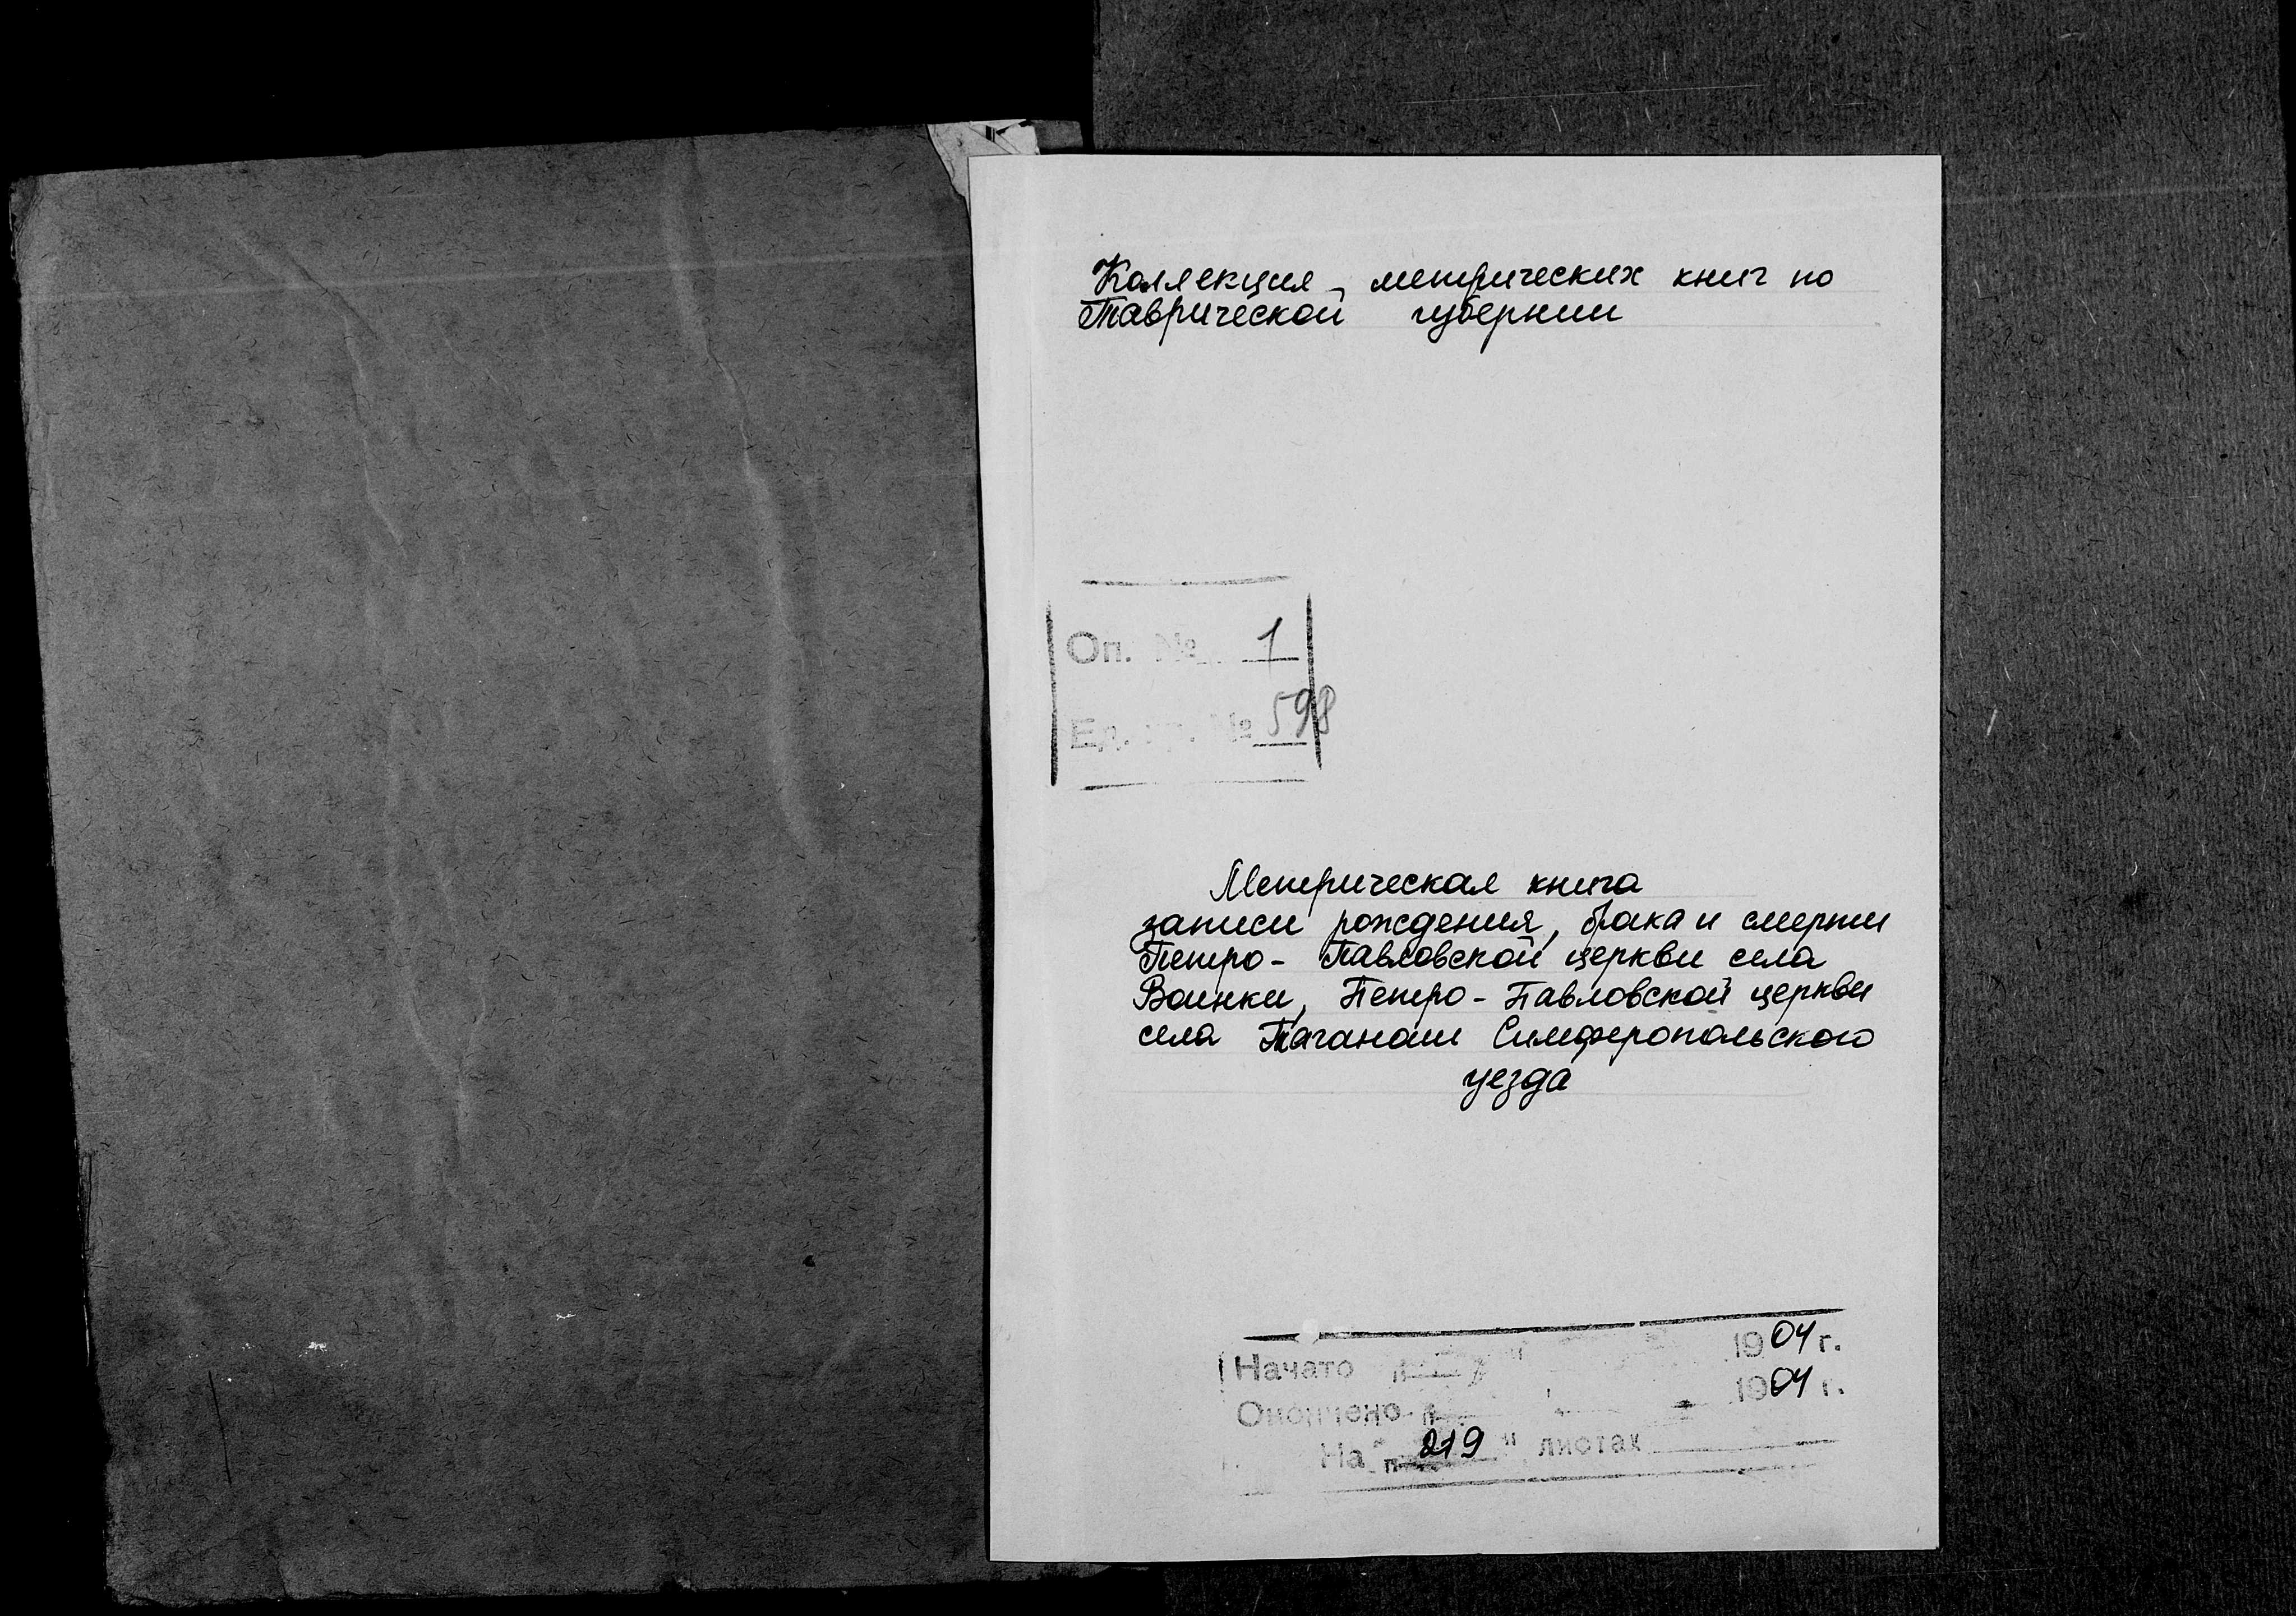 Коллекция метрических книг по
Таврической губернии
Оп. № 1
Ед. хр. № 598
Метрическая книга
записи рождения, брака и смерти
Петро- Павловской церкви села
Воинки, Петро-Павловской церкви
села Таганаш Симферопольского
уезда
Начато 1904 г.
Окончено 1904 г.
На 219 листах